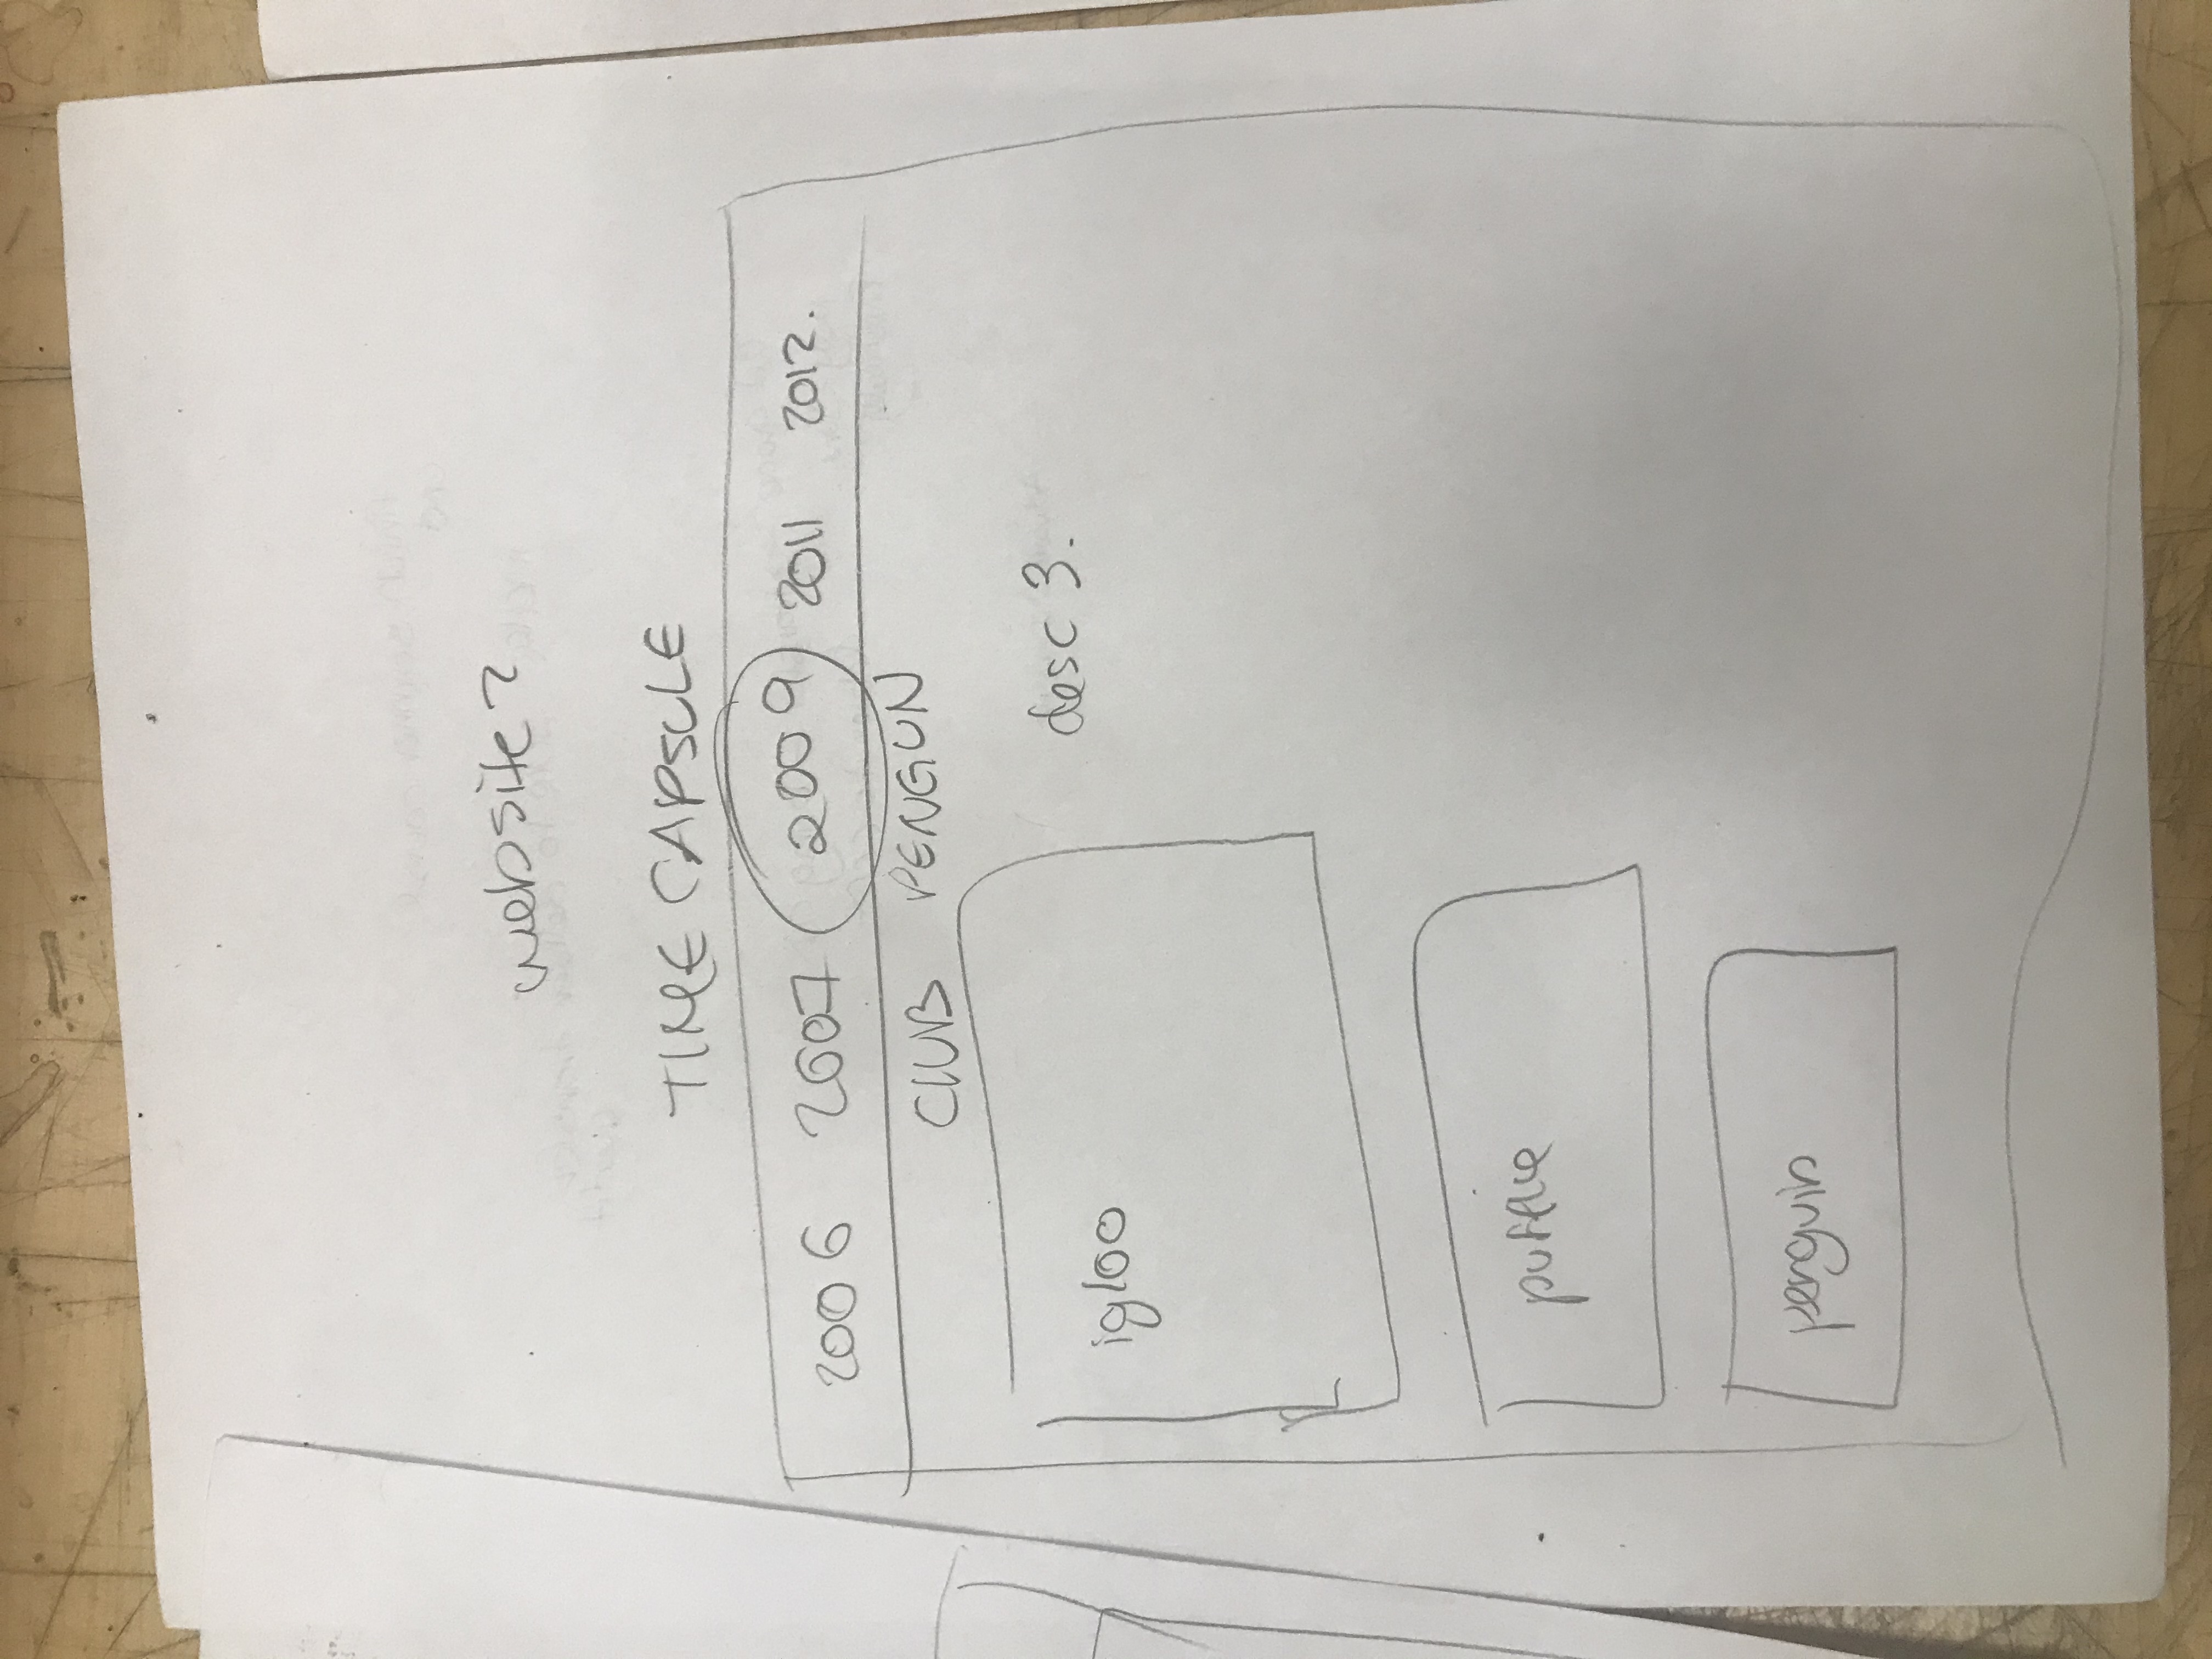 website ?
TIME CAPSULE
2006 2007 2009 2011 2012.
CLUB PENGUN
igloo
desc 3.
puffle
penguin